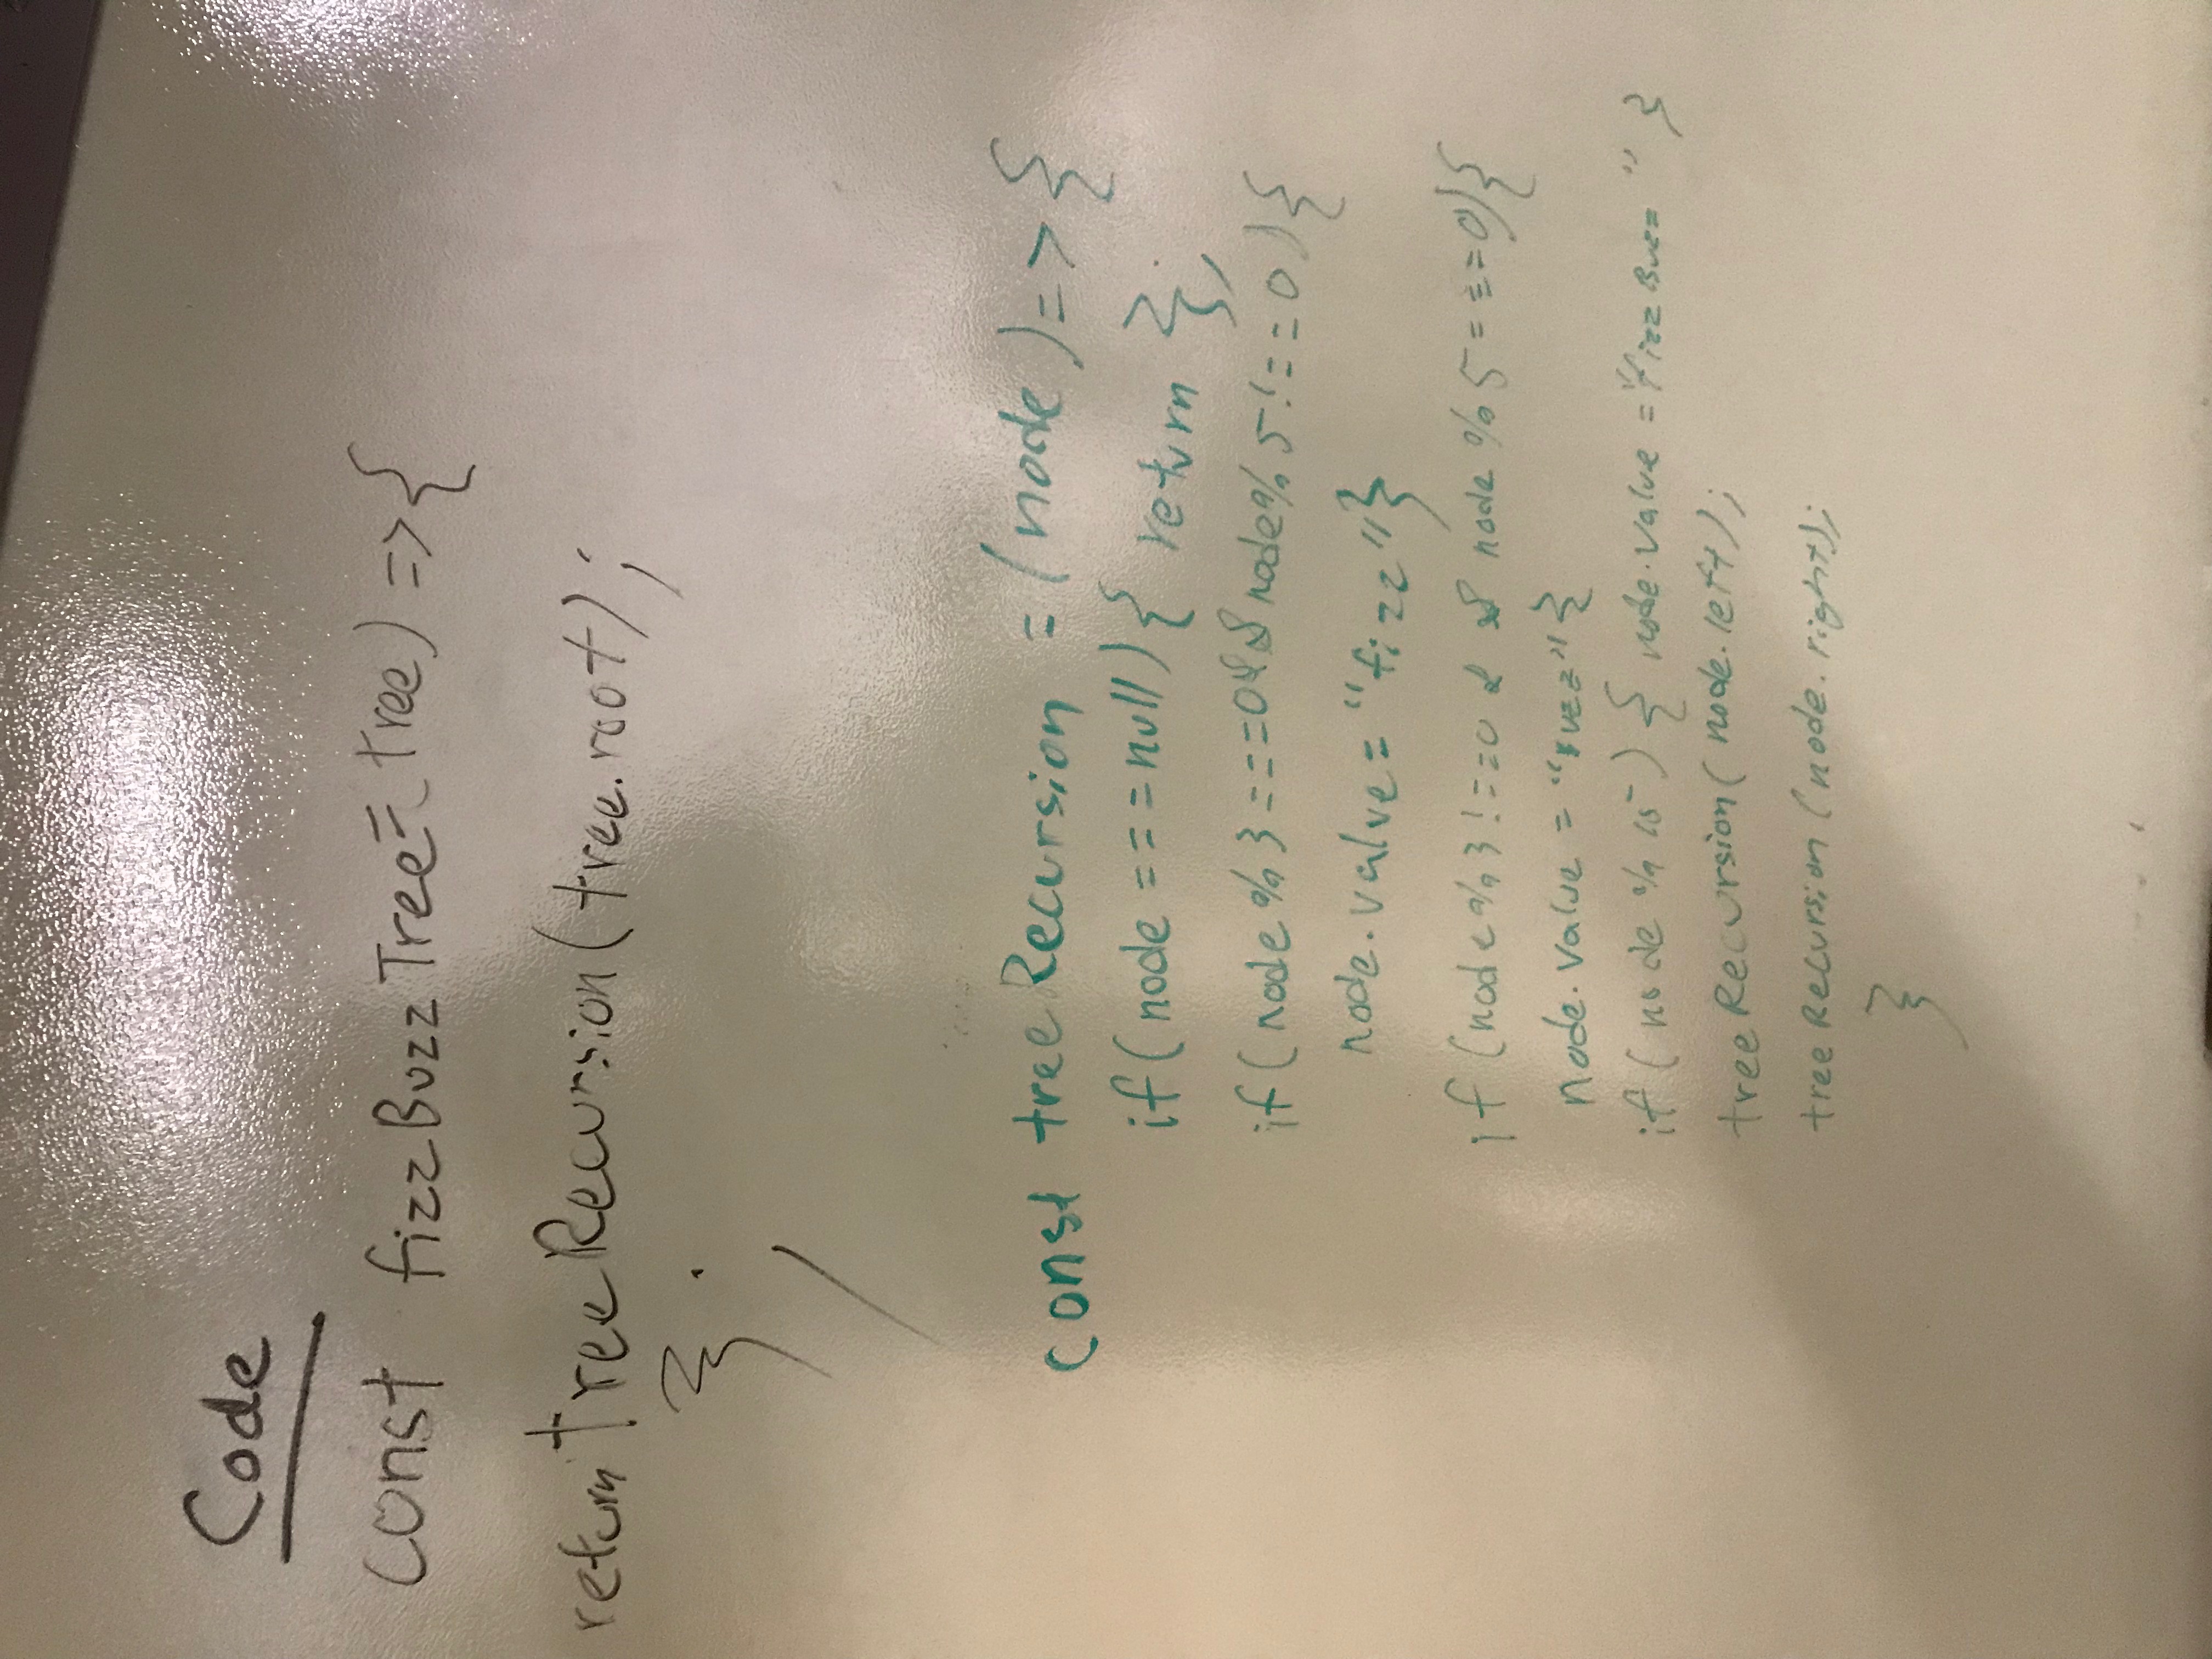 Code
const fizzBuzzTree = (tree) => {
return treeRecursion(tree.root);
};
const treeRecursion = (node) => {
if(node === null){ return };
if(node % 3 === 0 && node % 5 !== 0){
node.value = "fizz"}
if (node % 3 !== 0 && node % 5 === 0){
node.value = "buzz"}
if (node % 15) { node.value = "fizzBuzz" }
treeRecursion(node.left);
treeRecursion(node.right);
}